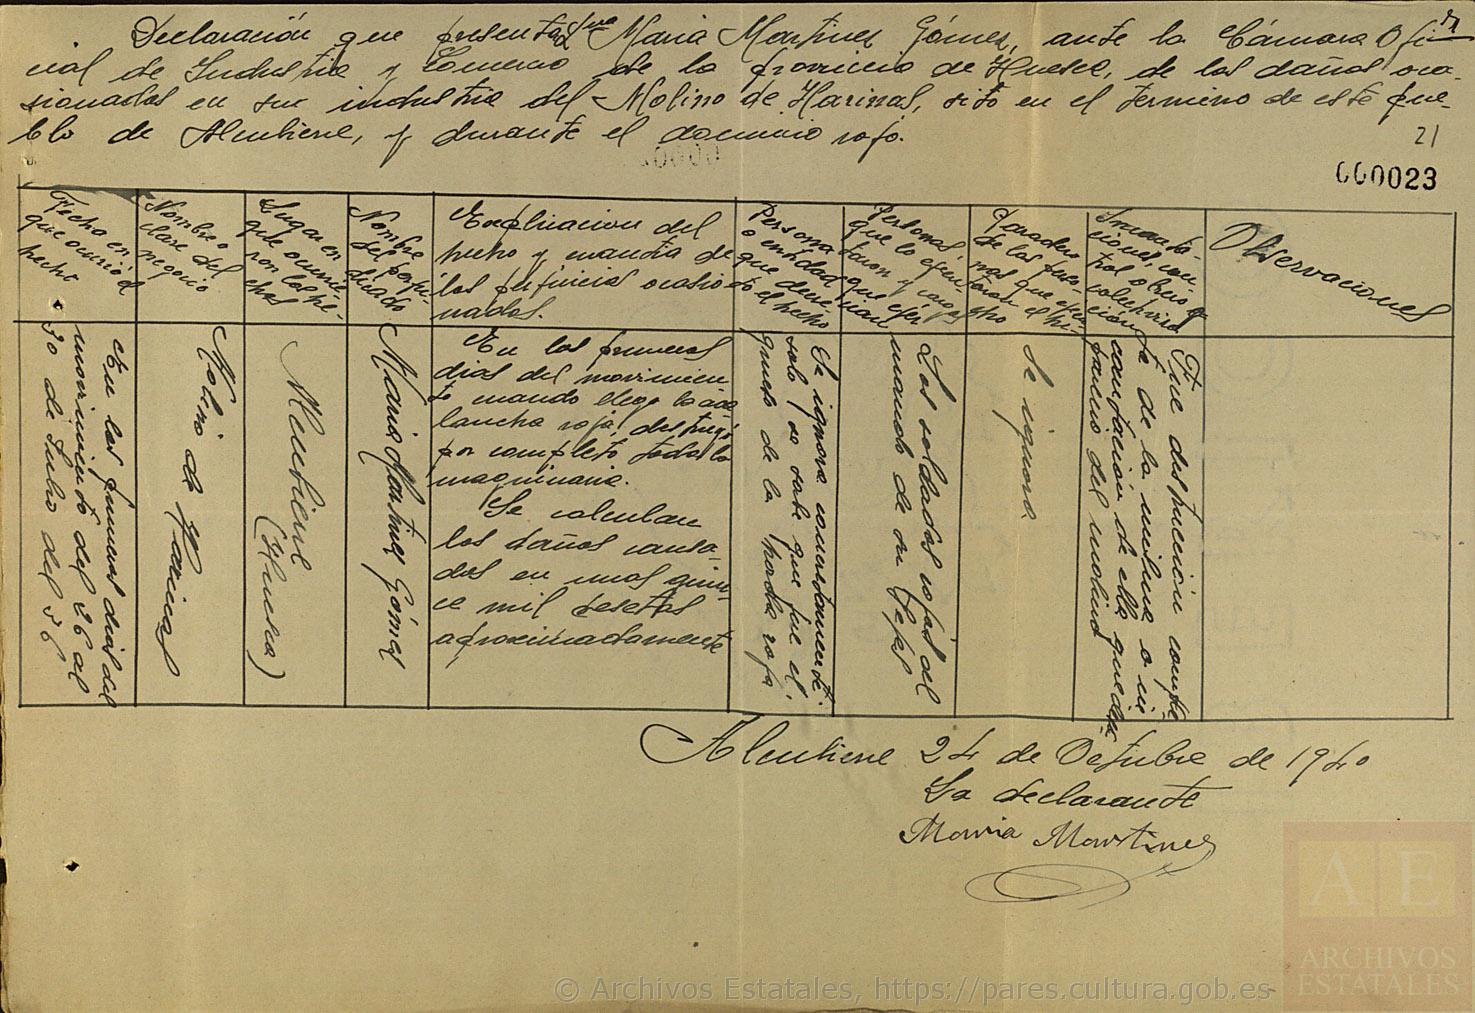 Declaración que presenta Dña María Martínez Gómez, ante la Cámara Ofi
cial de Industria y Comercio de la provincia de Huesca, de los daños oca-
sionados en su industria del Molino de Harinas, sito en el termino de este pue-
blo de Alcubierre, y durante el dominio rojo.
21
000023
Fecha en
que ocurrió el
hecho
Nombre o
clase del
negocio
Lugar en
que ocurrie-
ron los he-
chos
Nombre
del perju-
dicado
Explicacion del
hecho y cuantia de
los perjuicios ocasio
nados.
Persona
o entidad
que
el hecho
Personas
que lo ejecu
taron y cargos
que ejer
cian
Paradero
de las perso-
nas que ejecu
taron el he-
cho
Incauta-
ciones, con
trol obrero o
colectiviza
ción
Observaciones
En los primeros dias del
movimiento del 26 al
30 de Julio del 36
Molino de Harinas
Alcubierre
(Huesca)
María Martínez Gómez
En los primeros
dias del movimien
to cuando llego la ava
lancha roja, destruyó
por completo toda la
maquinaria.
Se calculan
los daños causa-
dos en unas quin-
ce mil pesetas
aproximadamente
Se ignora concretamente.
solo se sabe que fue el
grueso de la horda roja
Los soldados rojos del
mando de sus Jefes
Se ignora
Fue destrucción comple
ta de la misma o in
cautación de ella quedan
do vacio del molino
Alcubierre 24 de Octubre de 1940
La declarante
María Martínez
A E
ARCHIVOS
ESTATALES
© Archivos Estatales, https://pares.cultura.gob.es